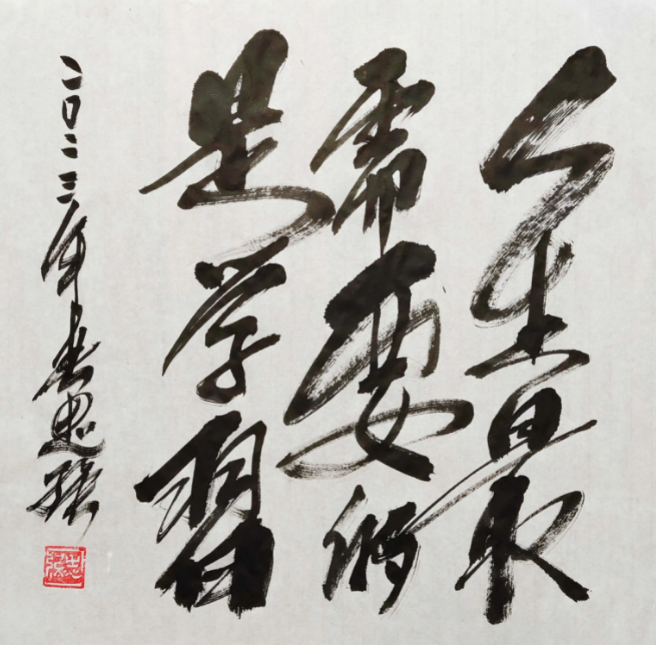 人生最
需要的
是学習
二〇二三年春忠强